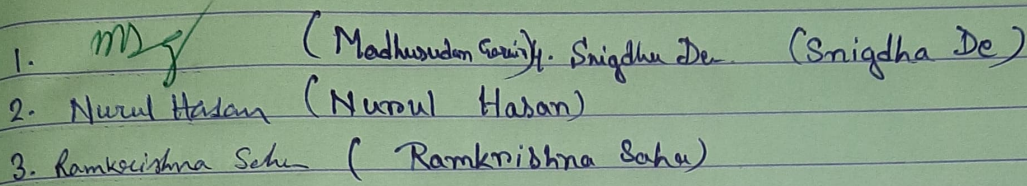 1. (Madhusudan Snigdha De (Snigdha De)
2. Nurul Hasan (Nuroul Hasan)
3. Ramkrishna Sahu (Ramkrishna Sahu)